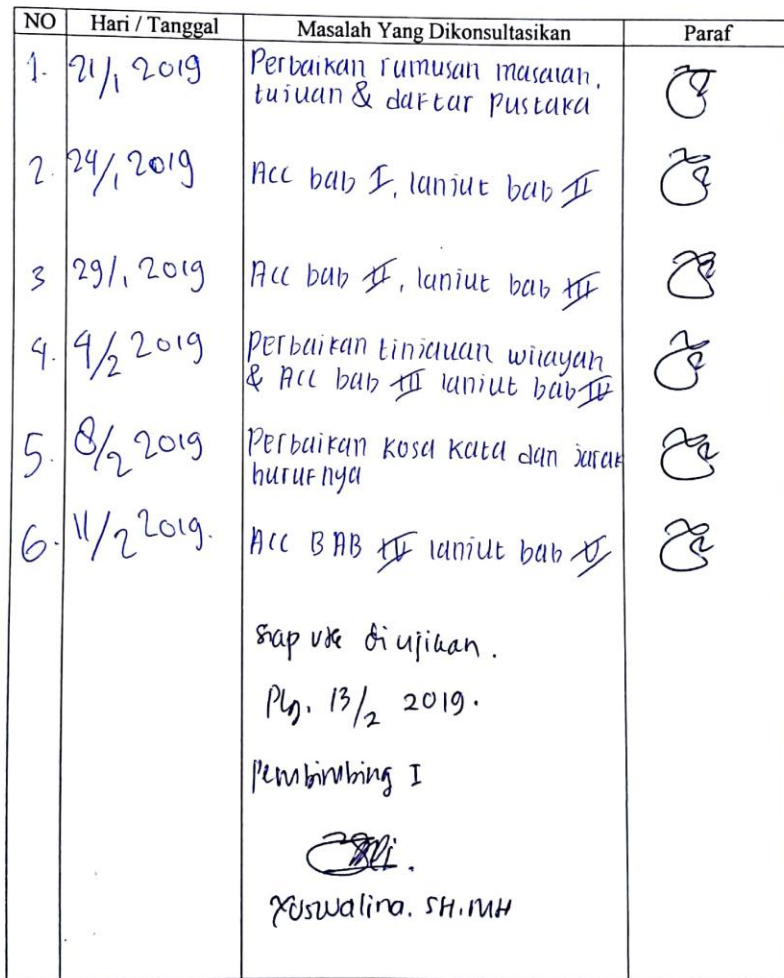 NO Hari / Tanggal Masalah Yang Dikonsultasikan Paraf
1. 21/1 2019 Perbaikan rumusan masalah,
tujuan & daftar pustaka
2. 24/1 2019 Acc bab I, lanjut bab II
3 29/1 2019 Acc bab II, lanjut bab III
4. 4/2 2019 Perbaikan tinjauan wilayah
& Acc bab III lanjut bab IV
5. 8/2 2019 Perbaikan kosa kata dan jarak
hurufnya
6. 11/2 2019. Acc BAB IV lanjut bab V
siap utk diujikan.
Plg. 13/2 2019.
Pembimbing I
Yuswalina. SH.MH